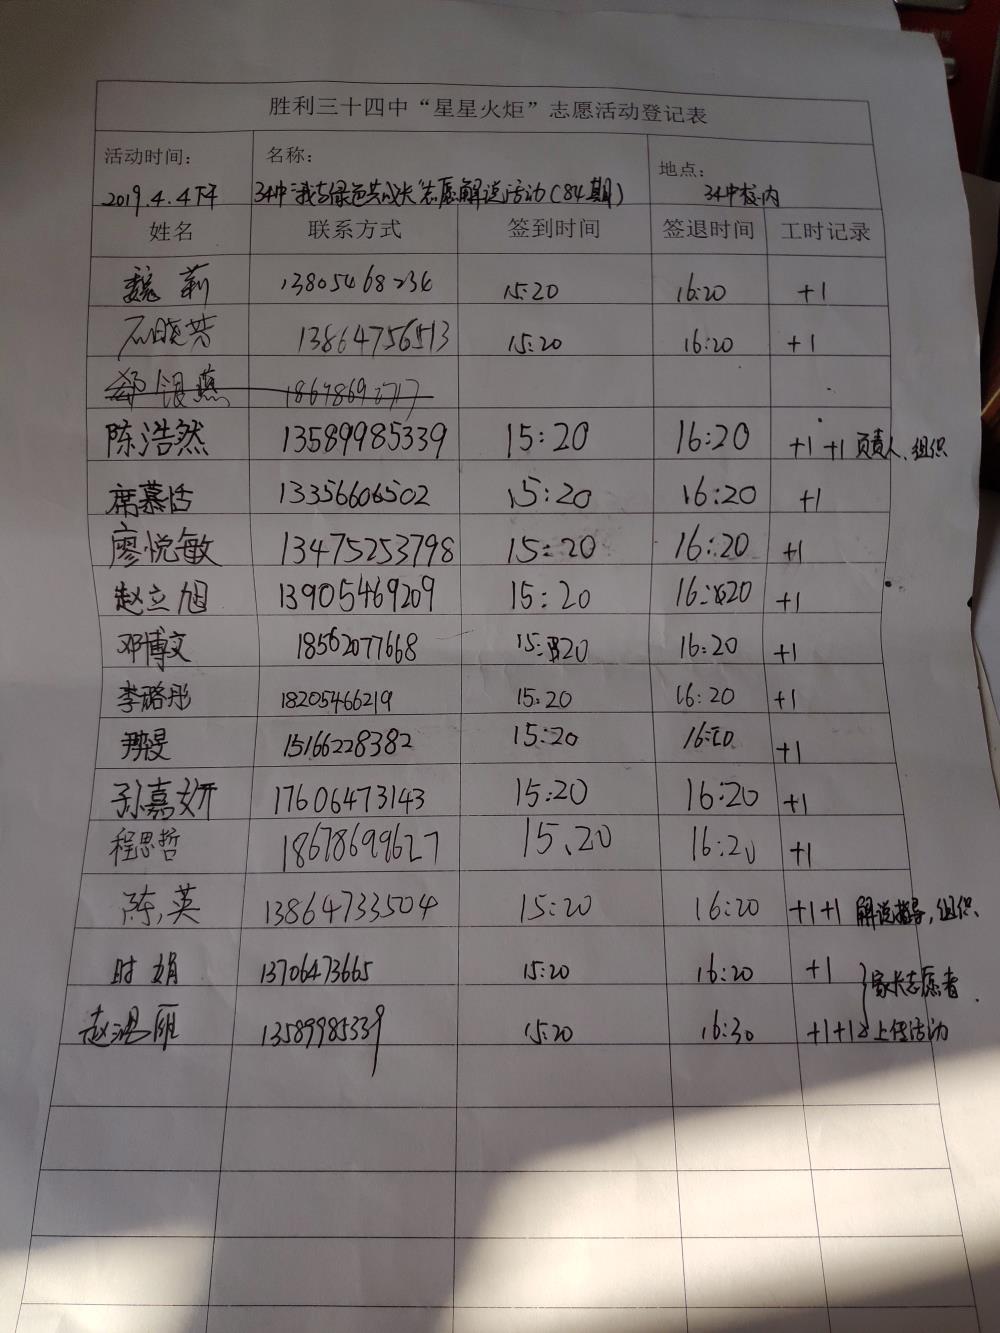 胜利三十四中“星星火炬”志愿活动登记表
活动时间： 名称： 地点：
2019.4.4下午 34中“我与绿色共成长”志愿解说活动(84期) 34中校内
姓名 联系方式 签到时间 签退时间 工时记录
魏莉 13805468236 15:20 16:20 +1
石晓芳 13864756513 15:20 16:20 +1
银燕
陈浩然 13589985339 15:20 16:20 +1 +1 负责人、组织
席慕恬 13356606502 15:20 16:20 +1
廖悦敏 13475253798 15:20 16:20 +1
赵立旭 13905469209 15:20 16:20 +1
邓博文 18562077668 15:20 16:20 +1
李璐彤 18205466219 15:20 16:20 +1
尹旻 15166228382 15:20 16:20 +1
孙嘉妍 17606473143 15:20 16:20 +1
程思哲 18678699627 15、20 16:20 +1
陈英 13864733504 15:20 16:20 +1+1 解说指导,组织、
时娟 13706473665 15:20 16:20 +1 家长志愿者
赵丽 13589985339 15:20 16:30 +1+1 上传活动